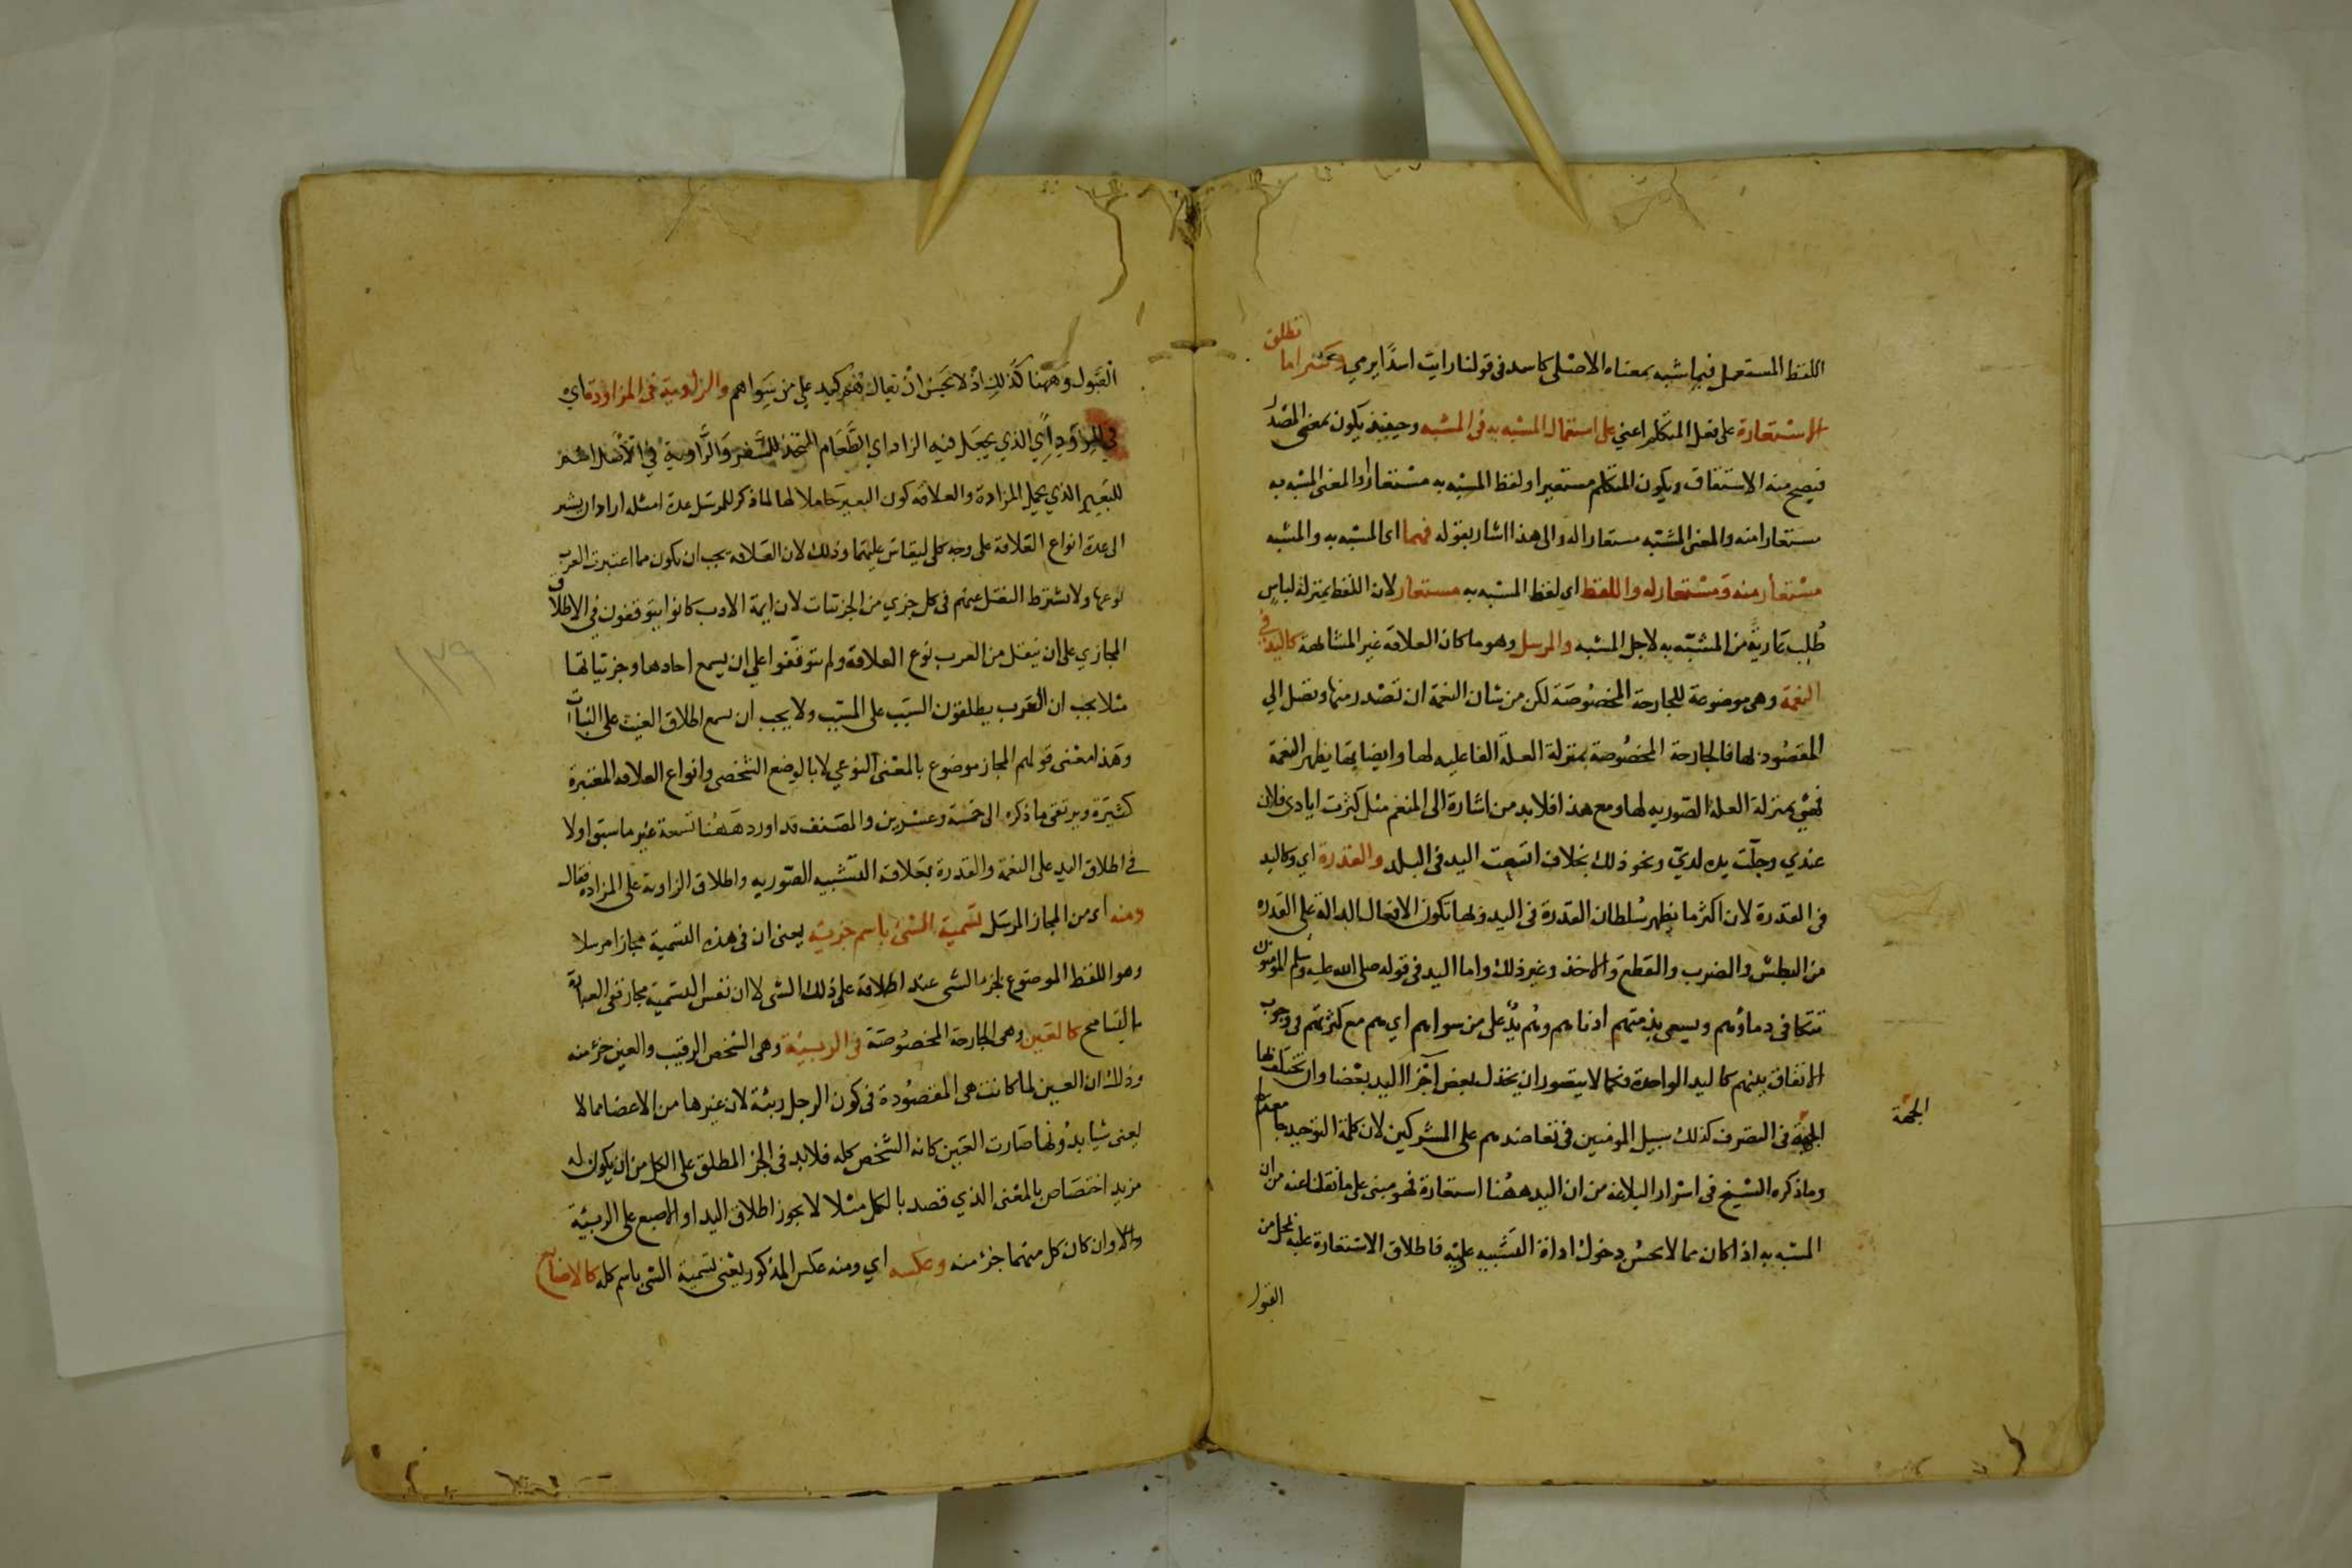 اللفظ المستعمل فيما شبه بمعناه الاصلى كاسد فى قولنا رايت اسدًا يرمي وكثيرا ما تطلق
الاستعارة على فعل المتكلم اعني على استعمال المشبه به فى المشبه وحينئذ يكون بمعنى المصدر
فيصح منه الاشتقاق ويكون المتكلم مستعيرا ولفظ المشبه به مستعارا والمعنى المشبه به
مستعارا منه والمعنى المشبه مستعارا له والى هذا اشار بقوله فهما اى المشبه به والمشبه
مستعار منه ومستعار له واللفظ اى لفظ المشبه به مستعار لان اللفظ بمنزلة لباسٍ
طُلِب عارية من المشبّه به لاجل المشبه والمرسل وهو ما كان العلاقة غير المشابهة كاليد في
النعمة وهى موضوعة للجارحة المخصُوصَة لكن من شان النعمة ان تصْدر منها وتصل الي
المقصُود بها فالجارحة المخصُوصة بمنزلة العلة الفاعليه لها وايضا بها يظهر النعمة
فهي بمنزلة العلة الصّوريه لها ومع هذا فلا بد من اشارة الى المنعم مثل كثرت ايادى فلان
عندي وجلّت يده لديّ ونحو ذلك بخلاف اتسعت اليد فى البلد والقدرة اي وكاليد
فى القدرة لان اكثر ما يظهر سُلطان القدرة فى اليد وبها تكون الافعال الدالة على القدره
من البطش والضرب والقطع والاخذ وغير ذلك واما اليد فى قوله صلى الله عليه وسلم المومنون
تتكافى دماؤهم ويسعى بذمتهم ادناهم وهُم يدٌ على من سواهم اي هم مع كثرتهم فى وجوب
الاتفاق بينهم كاليد الواحدة فكما لا يتصور ان يخذل بعض اجزا اليد بعْضا وان تختلف بها
الجهة فى التصرف كذلك سبيل المومنين فى تعاضدهم على المشركين لان كلمة التوحيد جامعة لهم
الجهة
وما ذكره الشيخ فى اسْرار البلاغه من ان اليد ههُنا استعارة فهو مبنى على ما نقلنا عنه من ان
المشبه به اذا كان مما لا يحسُن دخول اداة التشبيه عليْه فاطلاق الاستعارة عليه بمحل من
القبول
القبول وههنا كذلك اذ لا يحسن ان يقال هم كيد على من سِواهم والراوية فى المزادة اي
في المِزوَد اي الذي يجعَل فيه الزاد اي الطَّعَام المتخذ للسَّفر وَالرَّاوية في الاصْل اسْم
للبَعير الذي يحمل المزادة والعلاقه كون البعير حَاملا لها لما ذكر للمرسَل عدة امثله اراد ان يشير
الى عدة انواع العَلاقة على وجه كلى ليقاسَ عليهَا وذلك لان العَلاقه يجب ان يكون مما اعتبرت العرب
نوعها ولا نشترط النقل عنهم فى كل جزى من الجزئيات لان ايمة الادب كانوا يتوقفون فى الاطلاق
المجازي على ان ينقل من العرب نوع العلاقة ولم يتوقفوا على ان يسمع احادها وجزئياتها
مثلا يجب ان العَرب يطلقون السبَب على المسبّب ولا يجب ان يسمع اطلاق الغيث على النبات
وهَذا معْنى قولهم المجاز موضوع بالمعْنى النوعي لا بالوضع الشخصى وانواع العلاقه المعتبرة
كثيرَة ويرتقى ما ذكره الى خمسة وعشرين والمصَنف قد اورد ههُنا تسعة غير ما سبق اولا
فى اطلاق اليد على النعمة والقدرة بعَلاقة التشبيه الصّوريه واطلاق الراوية على المزاده فقال
ومنه اى من المجاز المرسَل تسمية الشئ باسم جزيه يعنى ان فى هذه التسْمية مجازا مرسلا
وهو اللفظ الموضوع لجز الشى عند اطلاقه على ذلك الشى لا ان نفس التسْمية مجاز ففى العبارة
التسَامح كالعَين وهى الجارحة المخصُوصَة فى الربيئة وهى الشخص الرقيب والعين جزء منه
وذلك ان العين لما كانت هى المقصُودة فى كون الرجل ربيئة لان غيرها من الاعضا مما لا
يعنى شيا بدُونها صَارت العَين كانه الشخص كله فلا بد فى الجز المطلق على الكل من ان يكون له
مزيد اختصَاص بالمعْنى الذي قصد بالكل مثلا لا يجوز اطلاق اليد او الاصبع على الربيئة
والا وان كان كل منهما جزء منه وعكسه اي ومنه عكس المذكور يعْنى تسمية الشى باسم كله كالاصابع
١٢٩